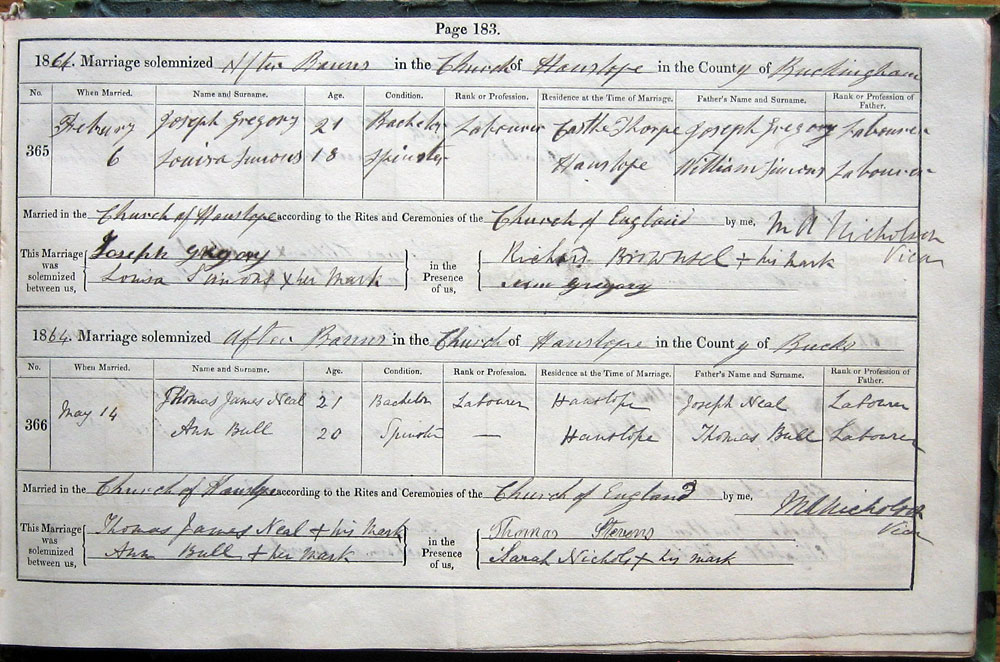 Page 183.
1864. Marriage solemnized After Banns in the Church of Hanslope in the County of Buckingham
No. When Married. Name and Surname. Age. Condition. Rank or Profession. Residence at the Time of Marriage. Father's Name and Surname. Rank or Profession of Father.
365 Joseph Gregory 21 Bachelor Labourer Castle Thorpe Joseph Gregory Labourer
6 Louisa Simons 18 Spinster Hanslope William Simons Labourer
Married in the Church of Hanslope according to the Rites and Ceremonies of the Church of England by me, M A Nicholson
Vicar
This Marriage was solemnized between us, Joseph Gregory in the Presence of us, Richard + his mark
Louisa Simons + her mark Gregory
1864. Marriage solemnized After Banns in the Church of Hanslope in the County of Bucks
No. When Married. Name and Surname. Age. Condition. Rank or Profession. Residence at the Time of Marriage. Father's Name and Surname. Rank or Profession of Father.
366 May 14 Thomas James Neal 21 Bachelor Labourer Hanslope Joseph Neal Labourer
Ann Bull 20 Spinster — Hanslope Thomas Bull Labourer
Married in the Church of Hanslope according to the Rites and Ceremonies of the Church of England by me, M A Nicholson
Vicar
This Marriage was solemnized between us, Thomas James Neal + his mark in the Presence of us, Thomas Stevens
Ann Bull + her mark Sarah Nichols + his mark